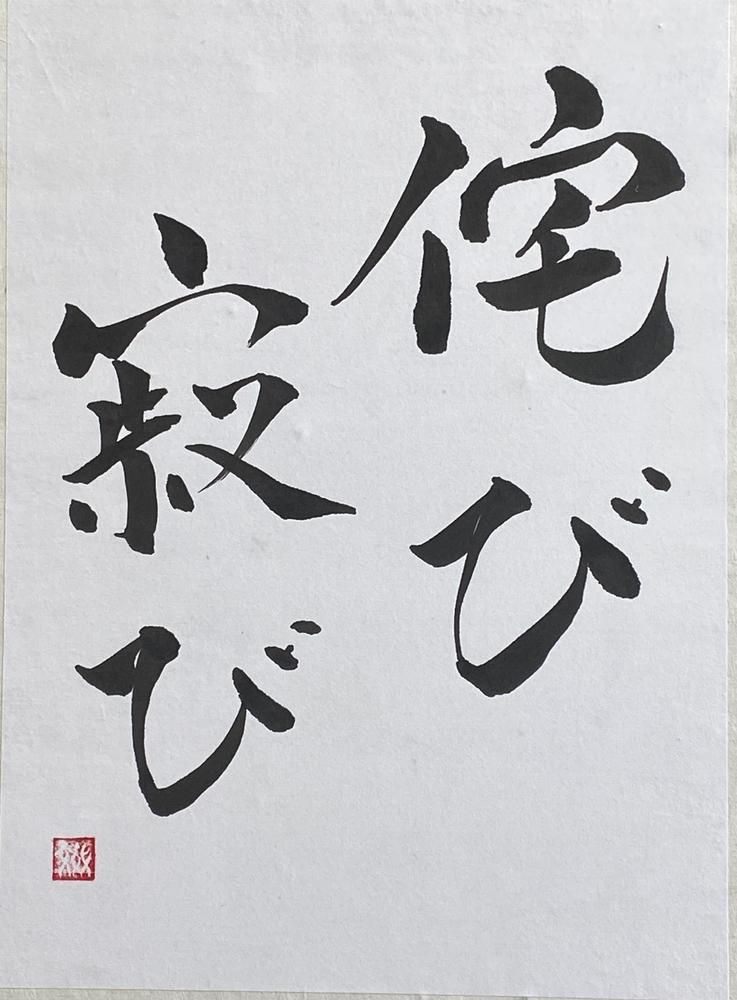 侘び
寂び